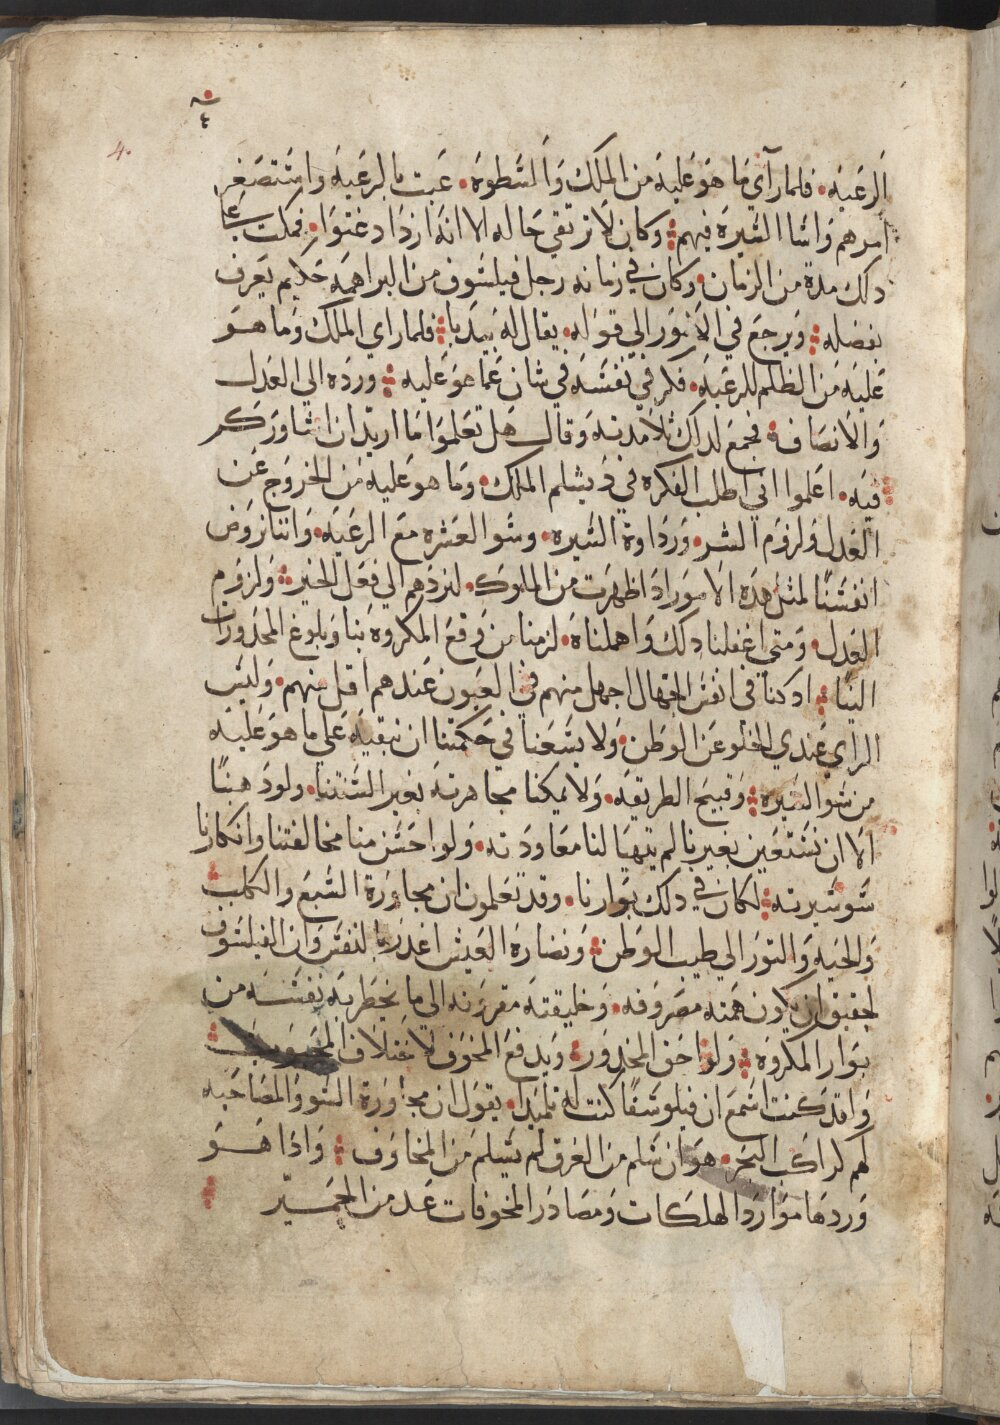 ٤
4.
الرعيه فلما رآي ما هو عليه من الملك والسطوة عبث بالرعيه واستصغر
امرهم واسا السيرة فيهم وكان لا ترتقي حاله الا انه ازداد عتوا فمكث علي
دلك مدة من الزمان وكان في زمانه رجل فيلسوف من البراهمه حكيم يعرف
بفضله ويرجع في الامور الي قوله يقال له بيدبا فلما راي الملك وما هو
عليه من الظلم للرعيه فكر في نفسه في شان عما هو عليه ورده الي العدل
والانصاف فجمع لدلك تلامدته وقال هل تعلموا ما اريد ان اشاوركم
فيه اعلموا اني اطلت الفكره في دبشلم الملك وما هو عليه من الخروج عن
العدل ولزوم الشر ورداوة السيره وسو العشره مع الرعيه واننا نروض
انفسنا لمثل هده الامور ادا ظهرت من الملوك لنردهم الي فعل الخير ولزوم
العدل ومتي اغفلنا دلك واهملناة لزمنا من وقع المكروه بنا وبلوغ المحدورات
الينا اد كنا في انفس الجهال اجهل منهم في العيون عندهم اقل منهم وليس
الراي عندي الخلو عن الوطن ولا يسعنا في حكمتنا ان نبقيه علي ما هو عليه
من سو السيره وقبيح الطريقه ولا يمكنا مجاهرته بغير السنتنا ولو دهبنا
الا ان نستعين بغيرنا لم يتهيا لنا معاودته ولو احسن منا مخالفتنا وانكارنا
سو سيرته لكان في دلك بوارنا وقد تعلمون ان مجاورة السبع والكلب
والحيه والثور الي طيب الوطن ونضارة العيش اغدر بالنفس وان الفيلسوف
لحقيق ان يكون همته مصروفه وخليقته مقررته الي ما يخطر به نفسه من
بوار المكروه ولواحق المحدور ويدفع المخوف لاختلاف المحبوب
واقد كنت اسمع ان فيلوسفا كنت له تلميد يقول ان مجاورة السو والمصاحبه
لهم كراكب البحر هو ان سلم من الغرق لم يسلم من المخاوف وادا هو
وردها موارد الهلكات ومصادر المخوفات عد من الحمير